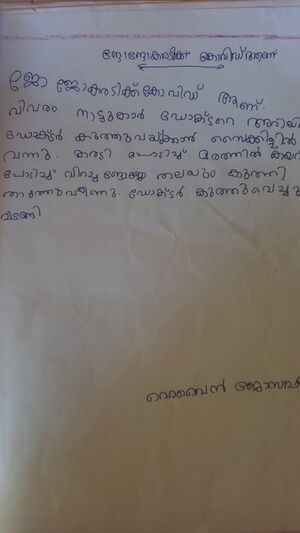 ജോജോകരടിക്ക് കൊവിഡ് ആണ്
ജോ ജോകരടിക്ക് കോവിഡ് ആണ്.
വിവരം നാട്ടുകാർ ഡോക്ടറെ അറിയി
ഡോക്ടർ കുത്തുവയ്ക്കാൻ സൈക്കിളിൽ
വന്നു. കരടി പേടിച്ച് മരത്തിൽ കയറി
പേടിച്ച് വിറച്ച ജോജോ തലയും കുത്തി
താഴത്തുവീണു. ഡോക്ടർ കുത്തുവെച്ചു
മടങ്ങി